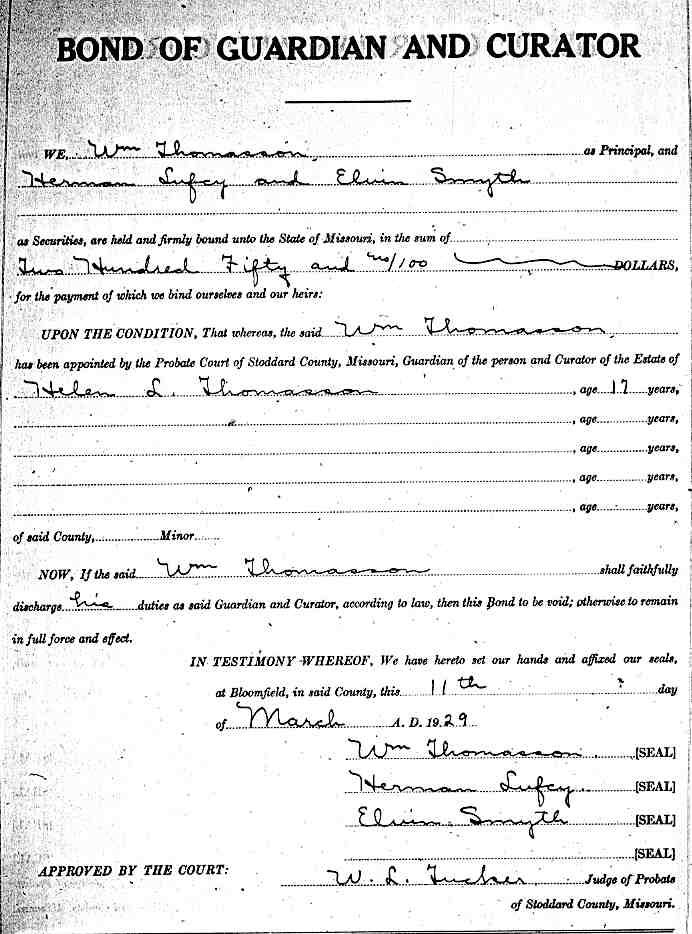 BOND OF GUARDIAN AND CURATOR
WE, Wm Thomasson, as Principal, and
Herman Lufcy and Elvin Smyth
as Securities, are held and firmly bound unto the State of Missouri, in the sum of
Two Hundred Fifty and no/100 DOLLARS,
for the payment of which we bind ourselves and our heirs:
UPON THE CONDITION, That whereas, the said Wm Thomasson,
has been appointed by the Probate Court of Stoddard County, Missouri, Guardian of the person and Curator of the Estate of
Helen L. Thomasson, age 17 years,
, age years,
, age years,
, age years,
, age years,
of said County, Minor
NOW, If the said Wm Thomasson shall faithfully
discharge his duties as said Guardian and Curator, according to law, then this Bond to be void; otherwise to remain
in full force and effect.
IN TESTIMONY WHEREOF, We have hereto set our hands and affixed our seals,
at Bloomfield, in said County, this 11th day
of March A. D. 1929
Wm Thomasson [SEAL]
Herman Lufcy [SEAL]
Elvin Smyth [SEAL]
[SEAL]
APPROVED BY THE COURT: W. L. Tucker Judge of Probate
of Stoddard County, Missouri.